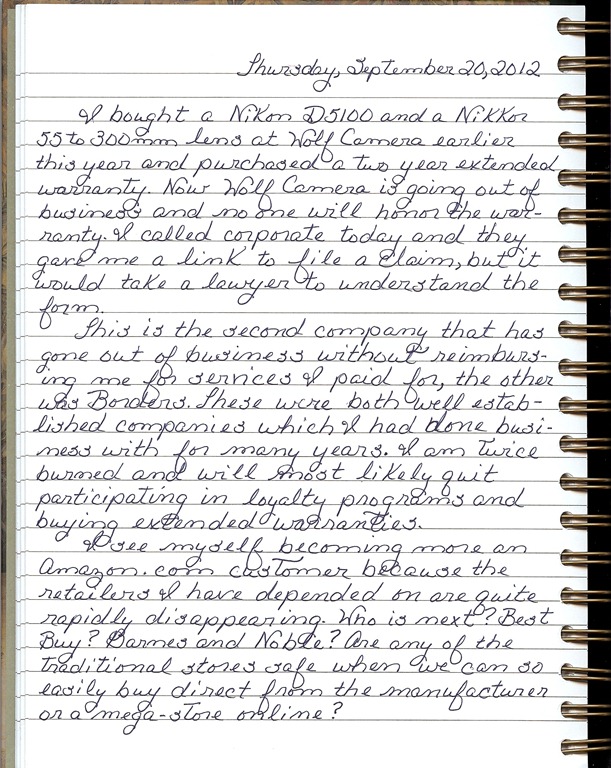 Thursday, September 20, 2012
I bought a Nikon D5100 and a Nikkor
55 to 300mm lens at Wolf Camera earlier
this year and purchased a two year extended
warranty. Now Wolf Camera is going out of
business and no one will honor the war-
ranty. I called corporate today and they
gave me a link to file a claim, but it
would take a lawyer to understand the
form.
This is the second company that has
gone out of business without reimburs-
ing me for services I paid for, the other
was Borders. These were both well estab-
lished companies which I had done busi-
ness with for many years. I am twice
burned and will most likely quit
participating in loyalty programs and
buying extended warranties.
I see myself becoming more an
Amazon.com customer because the
retailers I have depended on are quite
rapidly disappearing. Who is next? Best
Buy? Barnes and Noble? Are any of the
traditional stores safe when we can so
easily buy direct from the manufacturer
or a mega-store online?